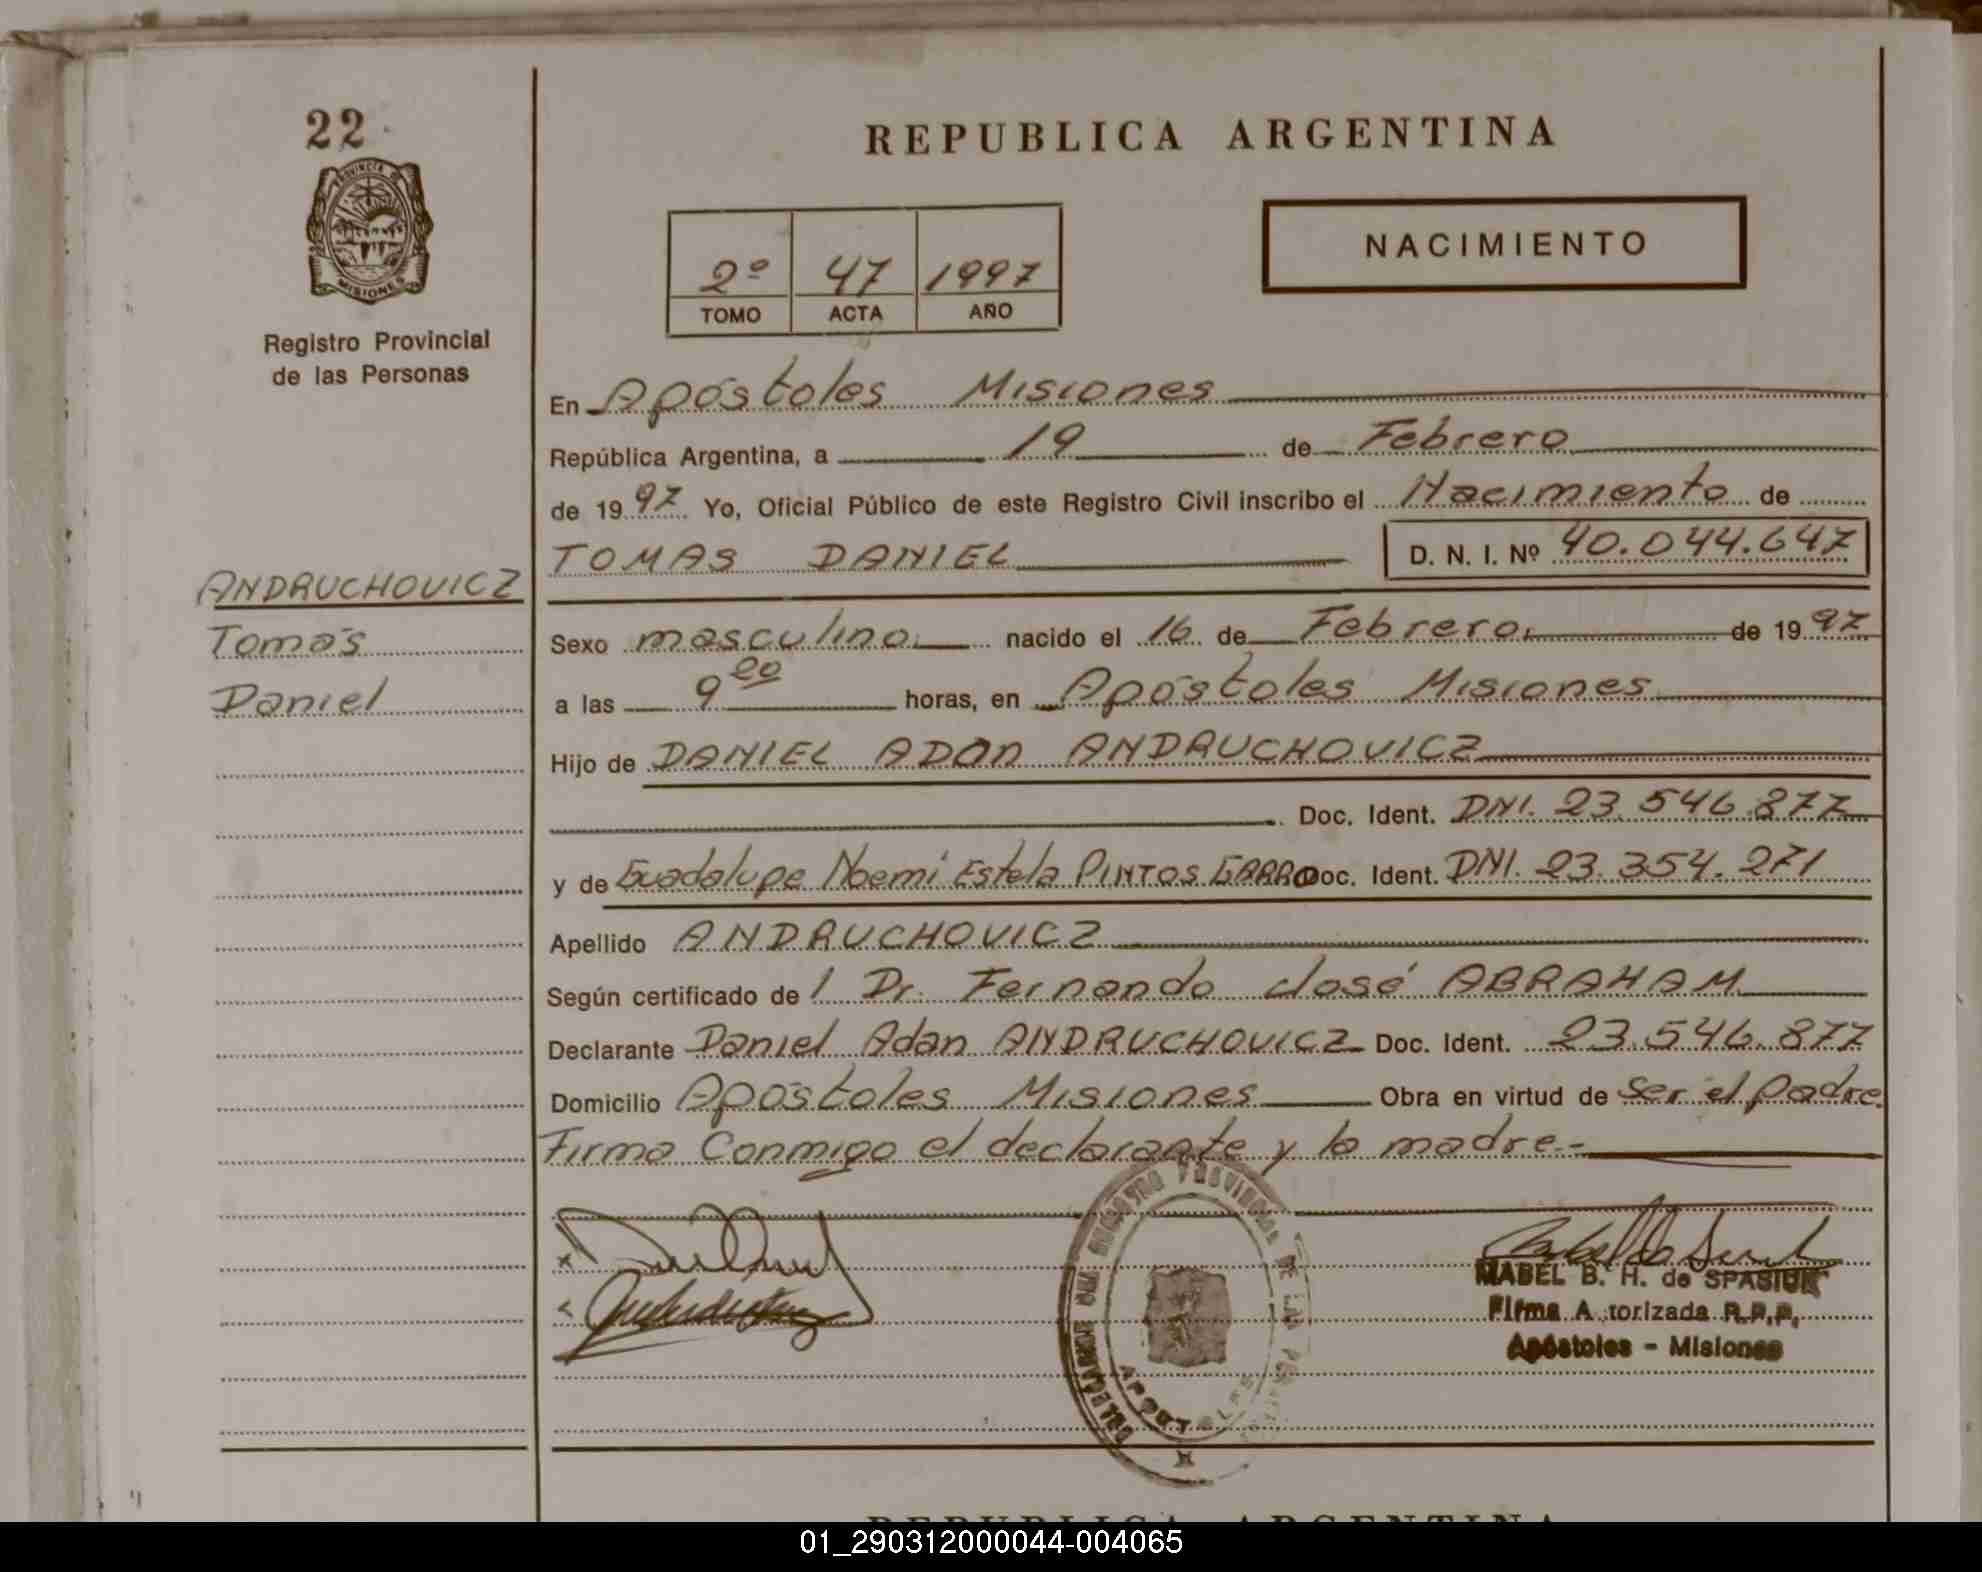 22
PROVINCIA DE
MISIONES
Registro Provincial
de las Personas
ANDRUCHOVICZ
Tomás
Daniel
REPUBLICA ARGENTINA
2º 47 1997
TOMO ACTA AÑO
NACIMIENTO
En Apóstoles Misiones
República Argentina, a 19 de Febrero
de 1997 Yo, Oficial Público de este Registro Civil inscribo el Nacimiento de
TOMAS DANIEL D. N. I. Nº 40.044.647
Sexo masculino. nacido el 16 de Febrero. de 1997
a las 9 00 horas, en Apóstoles Misiones
Hijo de DANIEL ADAn ANDRUCHOVICZ
Doc. Ident. DNI. 23.546.877
y de Guadalupe Noemí Estela PINTOS GARRO Doc. Ident. DNI. 23.354.271
Apellido ANDRUCHOVICZ
Según certificado de / Dr. Fernando José ABRAHAM
Declarante Daniel Adan ANDRUCHOVICZ Doc. Ident. 23.546.877
Domicilio Apóstoles Misiones Obra en virtud de ser el padre.
Firma Conmigo el declarante y la madre.-
MABEL B. H. de SPASIUK
Firma A torizada R.P.P.
Apóstoles - Misiones
REPUBLICA ARGENTINA
01_290312000044-004065